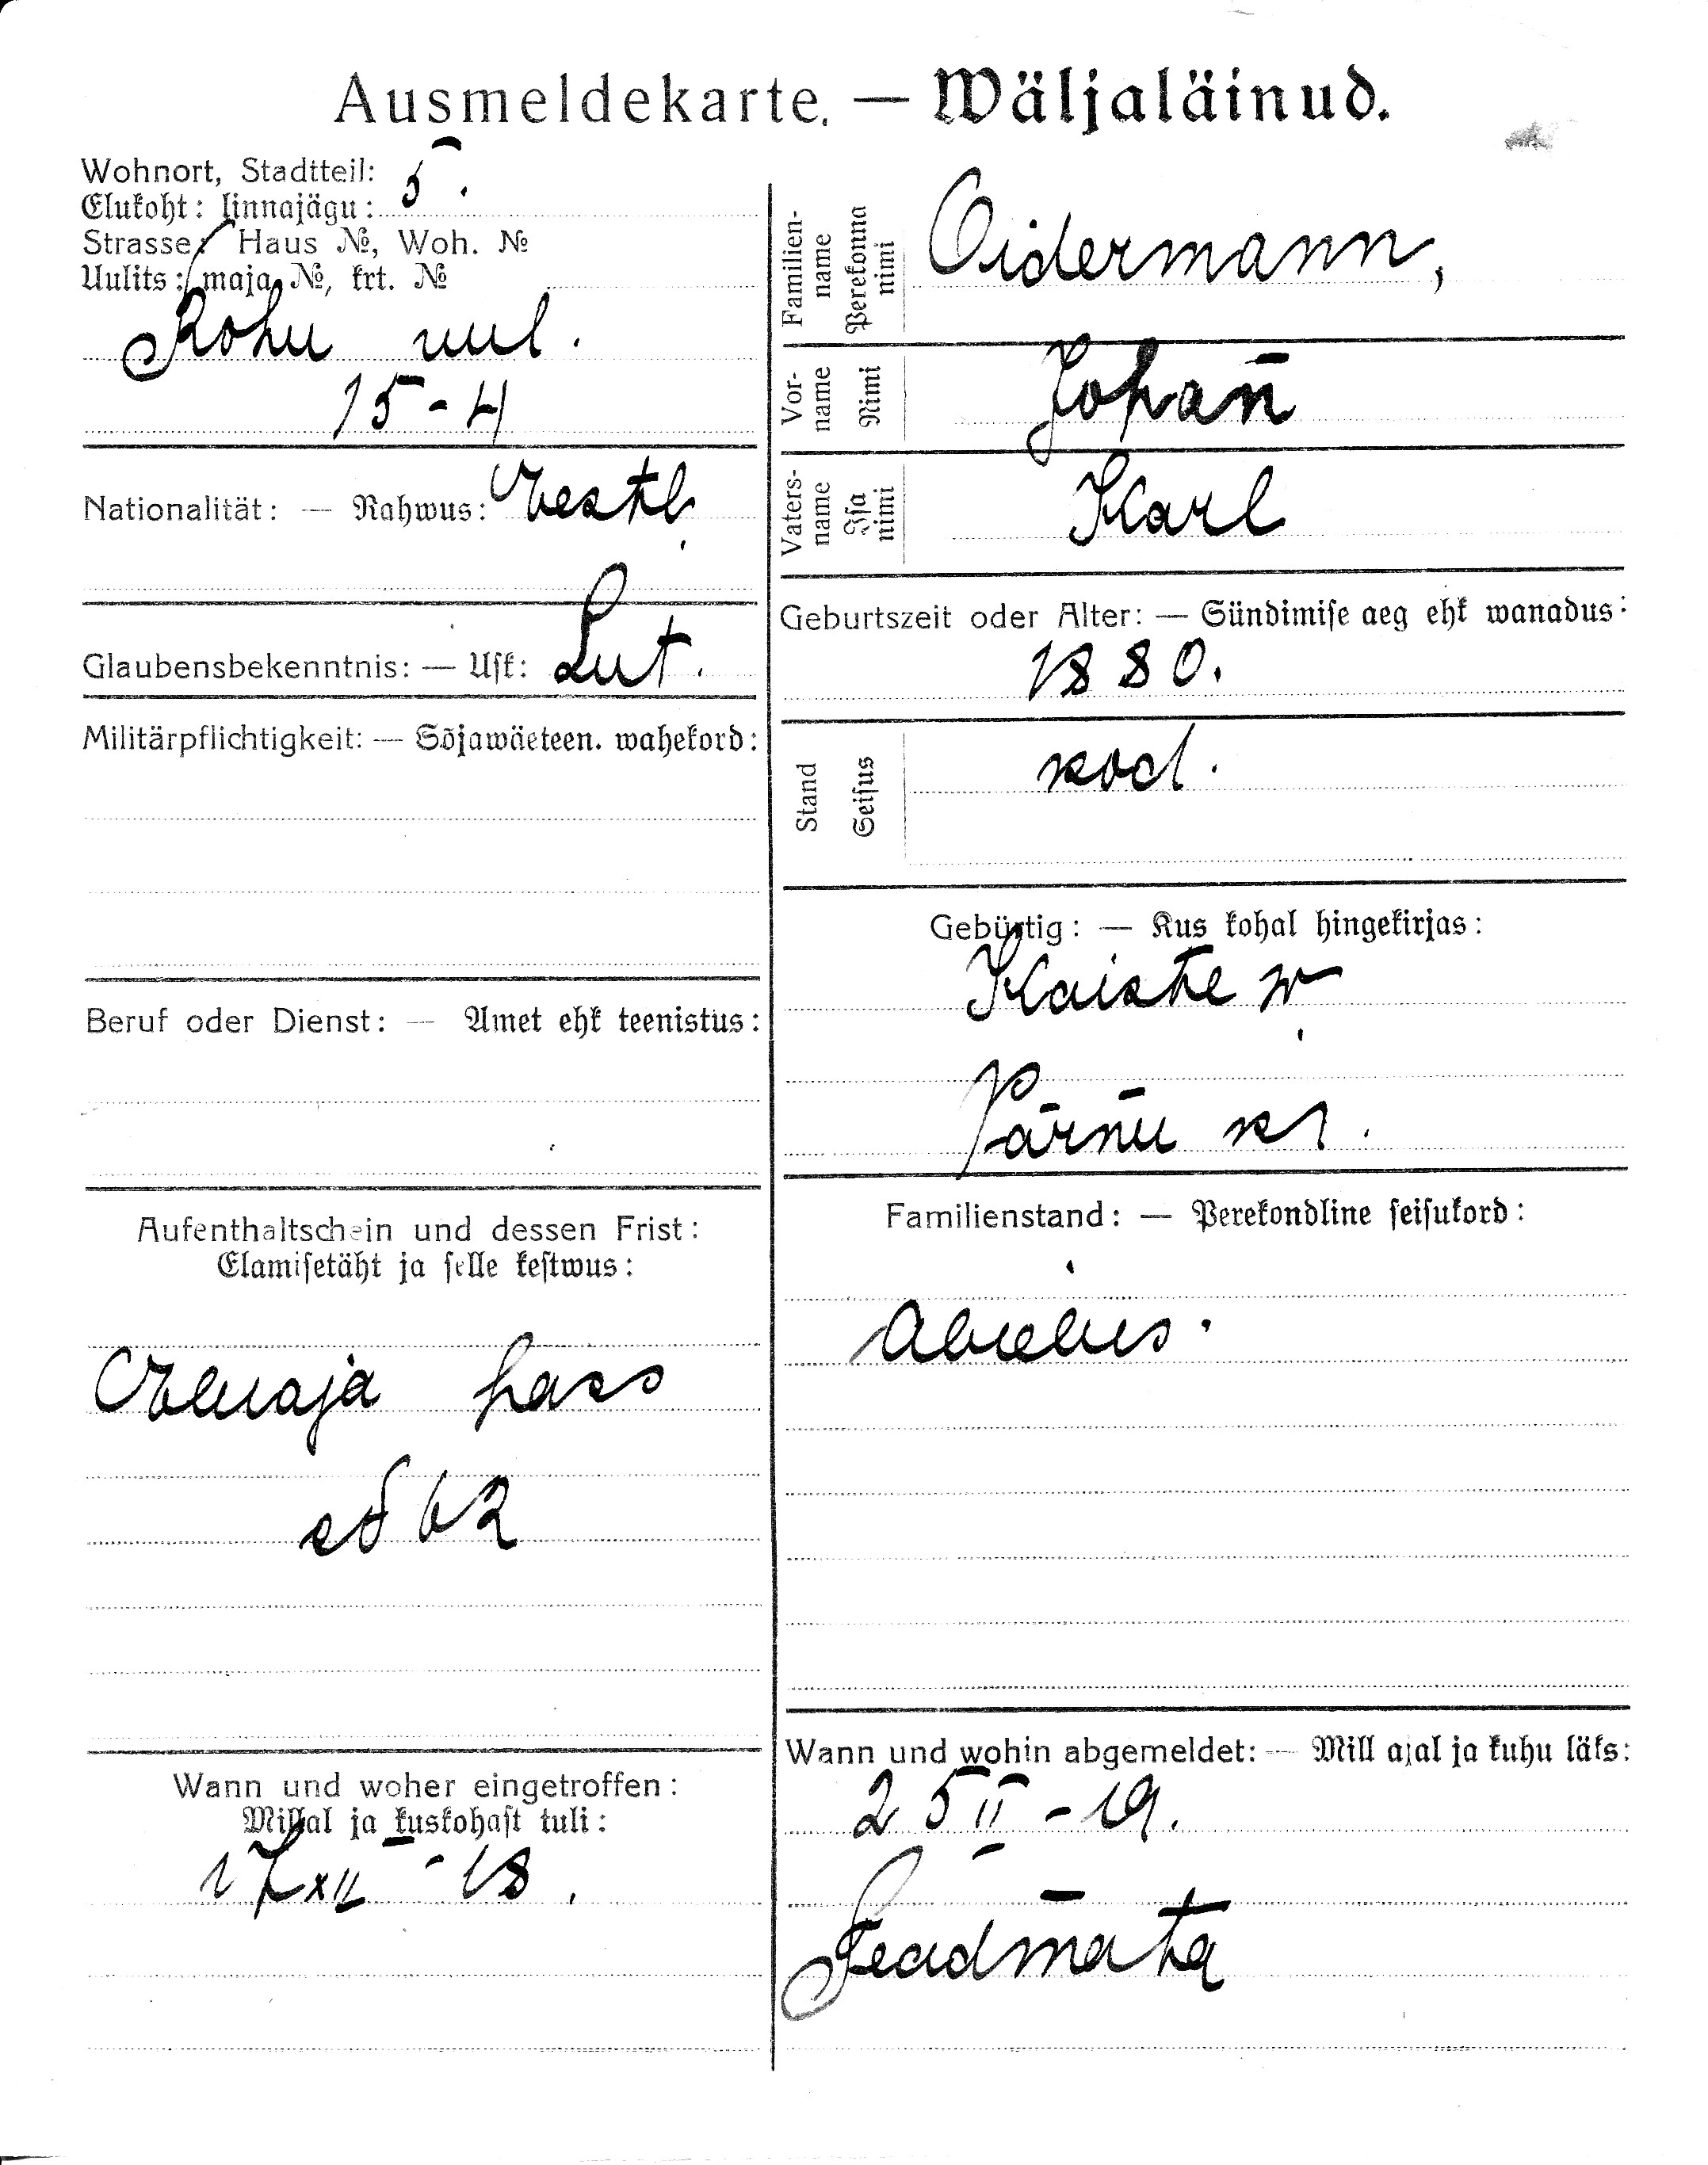 Ausmeldekarte. — Wäljaläinud.
Wohnort, Stadtteil: 5.
Elukoht: linnajägu:
Strasse, Haus №, Woh. №
Uulits: maja №, krt. №
Rohu uul.
15-4
Nationalität: — Rahwus: Eestl.
Glaubensbekenntnis: — Usk: Lut.
Militärpflichtigkeit: — Sõjawäeteen. wahekord:
Beruf oder Dienst: — Amet ehk teenistus:
Aufenthaltschein und dessen Frist:
Elamisetäht ja selle kestwus:
Elluaja pass
62
Wann und woher eingetroffen:
Millal ja kuskohast tuli:
17 XII - 18.
Familien-name Perekonna nimi
Oidermann,
Vor-name Nimi
Johan̄
Vaters-name Isa nimi
Karl
Geburtszeit oder Alter: — Sündimise aeg ehk wanadus:
1880.
Stand Seisus
kod.
Gebürtig: — Kus kohal hingekirjas:
Kaiste w.
Pärnu kr.
Familienstand: — Perekondline seisukord:
Abielus.
Wann und wohin abgemeldet: — Mill ajal ja kuhu läks:
25 II - 19.
Teadmata